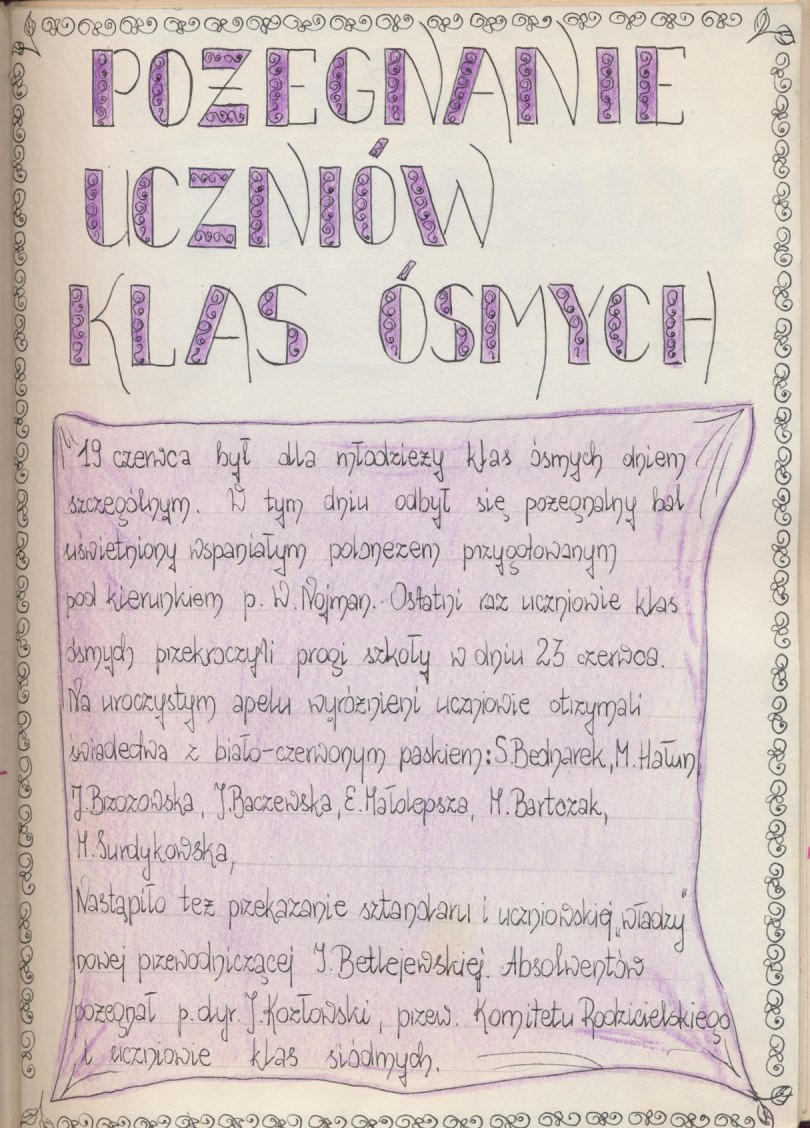 POŻEGNANIE
UCZNIÓW
KLAS ÓSMYCH
19 czerwca był dla młodzieży klas ósmych dniem
szczególnym. W tym dniu odbył się pożegnalny bal
uświetniony wspaniałym polonezem przygotowanym
pod kierunkiem p. W. Nojman. Ostatni raz uczniowie klas
ósmych przekroczyli progi szkoły w dniu 23 czerwca.
Na uroczystym apelu wyróżnieni uczniowie otrzymali
świadectwa z biało-czerwonym paskiem: S.Bednarek, M.Hałun,
J.Brzozowska, J.Baczewska, E.Małolepsza, M.Bartczak,
M.Surdykowska,
Nastąpiło też przekazanie sztandaru i uczniowskiej „władzy"
nowej przewodniczącej J.Betlejewskiej. Absolwentów
pożegnał p.dyr. J.Kozłowski, przew. Komitetu Rodzicielskiego
i uczniowie klas siódmych.